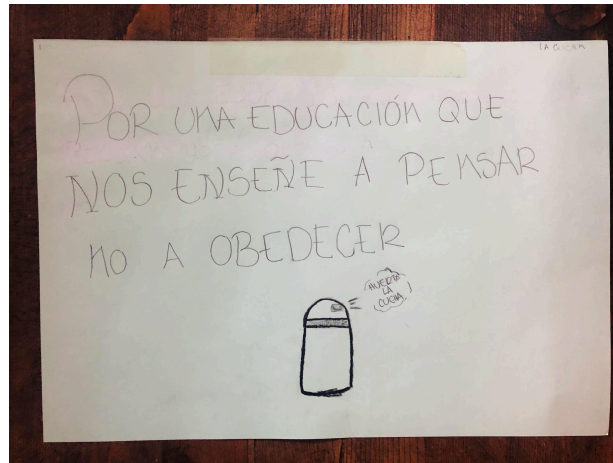 LA CUCHA
POR UNA EDUCACIÓN QUE
NOS ENSEÑE A PENSAR
NO A OBEDECER
LA